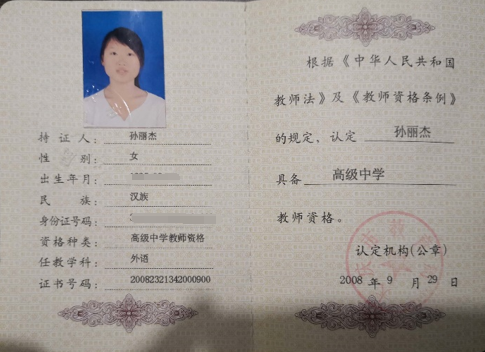 持证人：孙丽杰
性别：女
出生年月：
民族：汉族
身份证号码：
资格种类：高级中学教师资格
任教学科：外语
证书号码：20082321342000900
根据《中华人民共和国
教师法》及《教师资格条例》
的规定，认定 孙丽杰
具备 高级中学
教师资格。
认定机构(公章)
2008 年 9 月 29 日